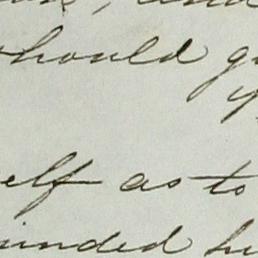 should g
elf as to
inded hi